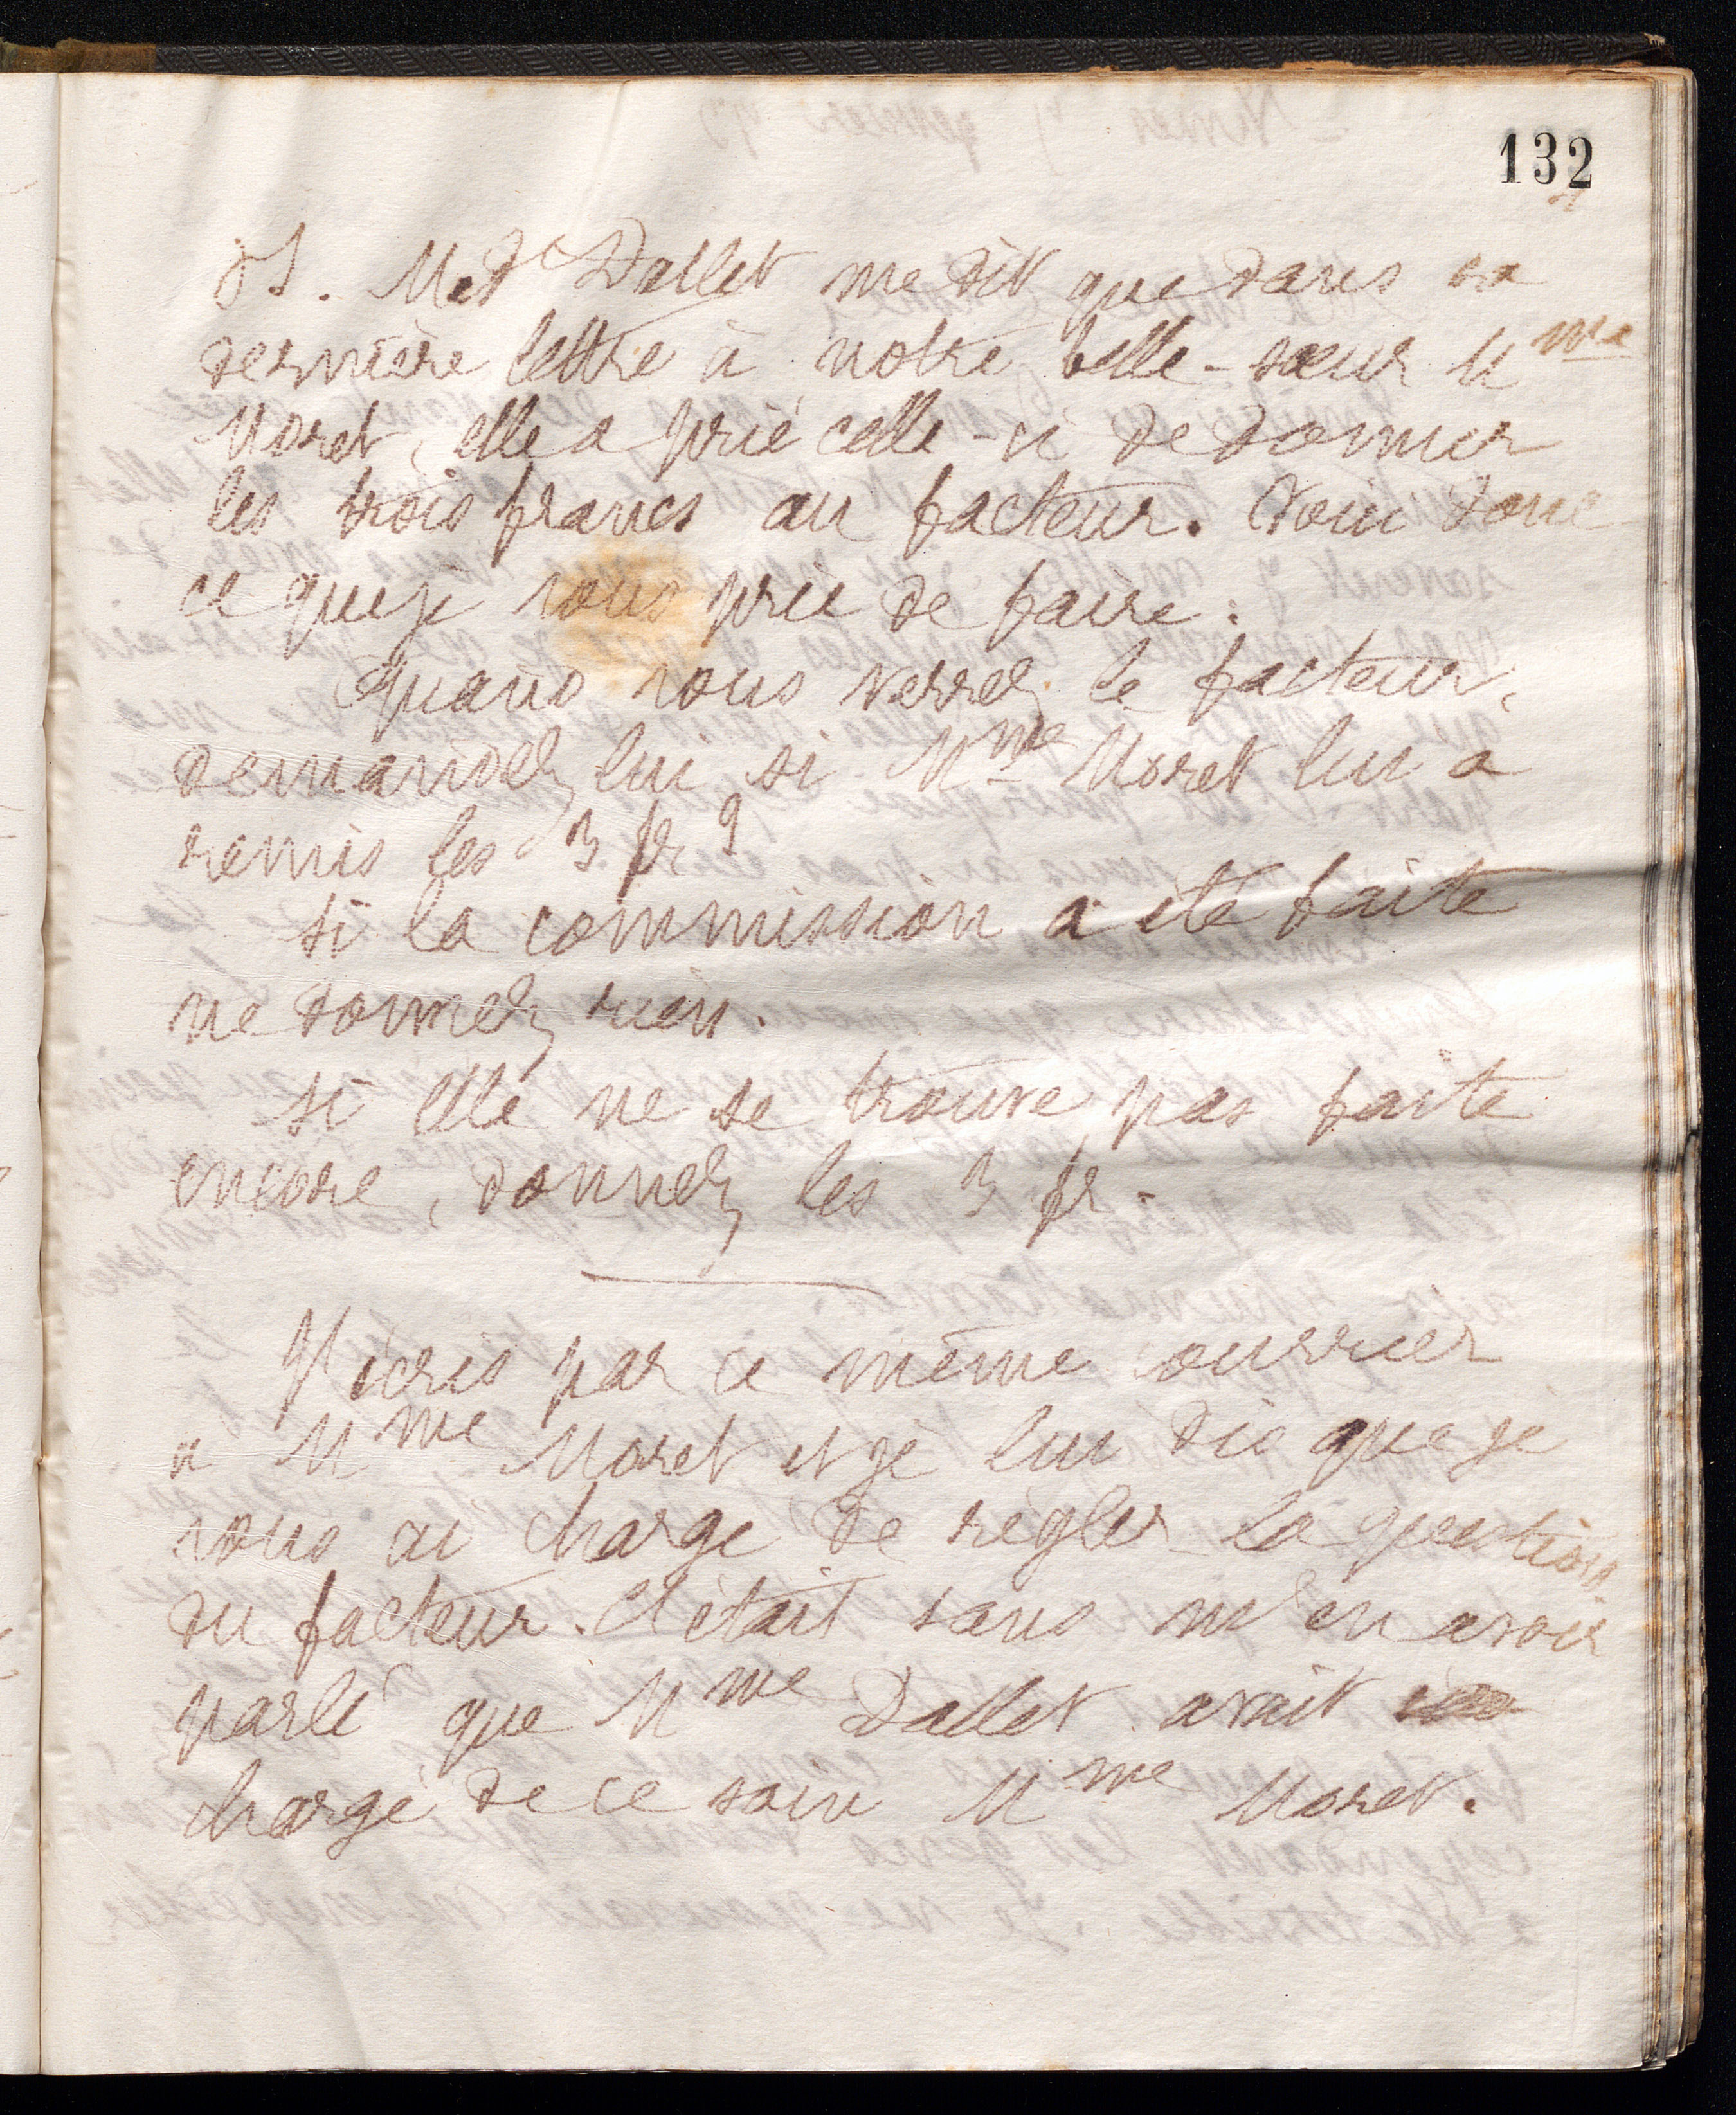 132
PS. Me Dallet me dit que dans sa
dernière lettre à notre belle-sœur Mme
Moret, elle a prié celle-ci de donner
les trois francs au facteur. Voici donc
ce que je vous prie de faire :
Quand vous verrez le facteur,
demandez lui si Mme Moret lui a
remis les 3 fr ?
Si la commission a été faite
ne donnez rien.
Si elle ne se trouve pas faite
encore, donnez les 3 fr.
J'écris par ce même courrier
à Mme Moret et je lui dis que je
vous ai chargé de régler la question
du facteur. C'était sans m'en avoir
parlé que Mme Dallet avait
chargé de ce soin Mme Moret.